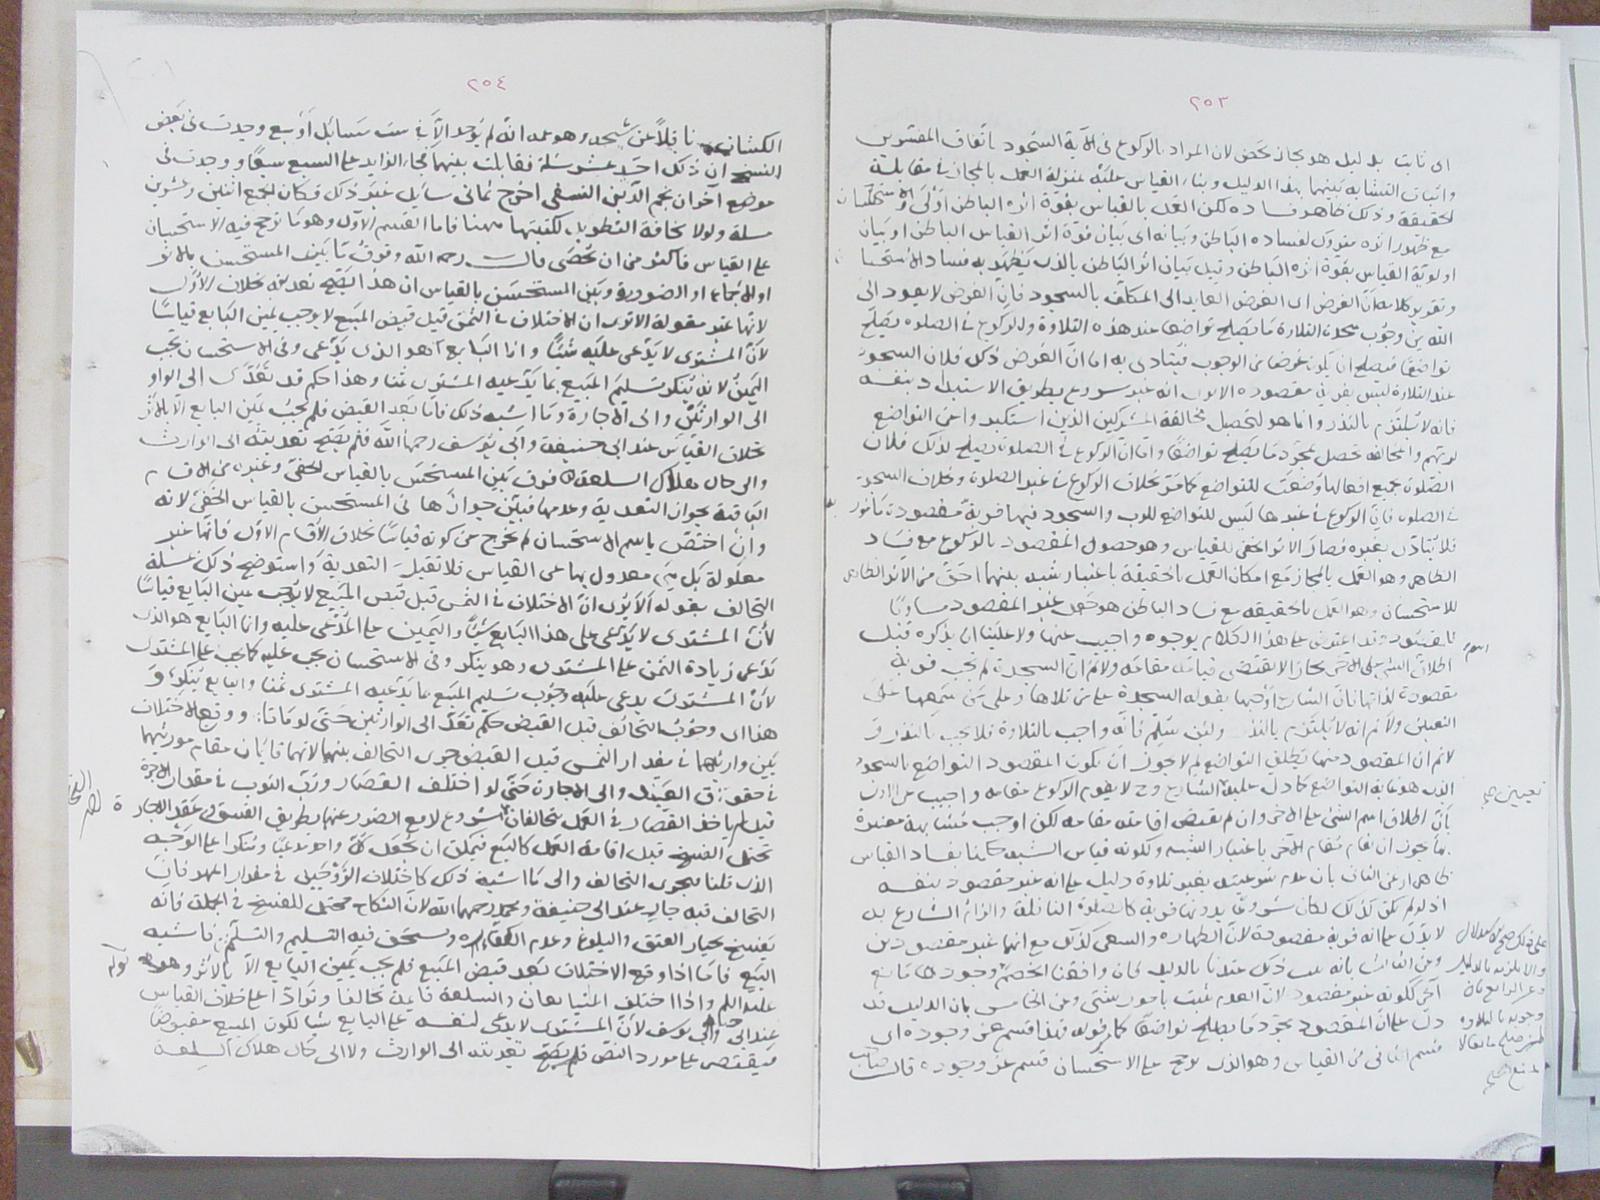 ٢٥٣
اى ثابت بدليل هو مجاز محض لان المراد بالركوع فى الآية السجود باتفاق المفسرين
واثبات التشابه بينهما بهذا الدليل وبناء القياس عليه بمنزلة العمل بالمجاز فى مقابلة
الحقيقة وذلك ظاهر فساده لكن العمل بالقياس بقوة اثره الباطن اولى والاستحسان
مع ظهور اثره متروك لفساده الباطن وبيانه اى بيان قوة اثر القياس الباطن او بيان
اولوية القياس بقوة اثره الباطن وقيل بيان اثر الباطن بالذى يظهر به فساد الاستحسا
وتقرير كلامه ان الغرض اى الغرض العايد الى المكلف بالسجود فان الغرض لا يعود الى
الله من وجوب سجدة التلاوة ما يصلح تواضعا عند هذه التلاوة والركوع فى الصلوة يصلح
تواضعا فيصلح ان يكون غرضا من الوجوب فيتادى به اما ان الغرض ذلك فلان السجود
عند التلاوة ليس بقربة مقصودة الا يرى انه غير مشروع بطريق الاستبداد بنفسه
فانه لا يلتزم بالنذر وانما هو لتحصيل مخالفة المشركين الذين استكبروا عن التواضع
لربهم والمخالفة تحصل بمجرد ما يصلح تواضعا واما ان الركوع فى الصلوة يصلح لذلك فلان
الصلوة جميع افعالها وضعت للتواضع كما مر بخلاف الركوع فى غير الصلوة وخلاف السجود
فى الصلوة فان الركوع فى غيرها ليس للتواضع للرب والسجود فيها قربة مقصودة مأمور
فلا يتادى بغيره فصار الاثر الخفى للقياس وهو حصول المقصود بالركوع مع فساد
الظاهر وهو العمل بالمجاز مع امكان العمل بالحقيقة باعتبار شبه بينهما احق من الاثر الظاهر
للاستحسان وهو العمل بالحقيقة مع فساد الباطن هو جعل غير المقصود مساويا
للمقصود وقد اعترض على هذا الكلام بوجوه واجيب عنها ولا علينا ان نذكره قيل
اطلاق الشئ على الاخر مجازا لا يقتضى قيامه مقامه ولانم ان السجدة لم تجب قربة
مقصودة لذاتها فان الشارع اوجبها بقوله السجدة على من تلاها وعلى من سمعها على
التعيين ولانم انه لا يلتزم بالنذر ولئن سلم فانه واجب بالتلاوة فلا يجب بالنذر و
لانم ان المقصود منها مطلق التواضع لم لا يجوز ان يكون المقصود التواضع بالسجود
الذى هو غاية التواضع كما دل عليه الشارع وح لا يقوم الركوع مقامه واجيب عن الاول
بان اطلاق اسم الشئ على الاخر وان لم يقتض اقامته مقامه لكن اوجب مشابهة معتبرة
يجوز ان يقام مقام الآخر باعتبار الشبه ولكونه قياس الشبه حكمنا بفساد القياس
ظاهرا وعن الثانى بان عدم شرعيته بغير تلاوة دليل على انه غير مقصود بنفسه
اذ لو لم يكن كذلك لكان مشروعا بدونها قربة كالصلوة النافلة والزام الشارع به
لا يدل على انه قربة مقصودة لان الطهارة والسعى كذلك مع انهما غير مقصودين
وعن الثالث بانه عدم ذلك عندنا بالدليل كان وافقنا الخصم وجودها مانع
آخر ككونه غير مقصود لان العدم يثبت بامور شتى وعن الخامس بان الدليل قد
دل على ان المقصود مجرد ما يصلح تواضعا كما مر قوله فهذا قسم عز وجوده اى
قسم الثانى من القياس وهو الذى يرجح على الاستحسان قسم عز وجوده قال صاحب
اسم
تعيين صح
على ذلك
والا يلزم بالدليل
وعن الرابع بان
وجوبه بالتلاوة
٢٥٤
الكشاف ناقلا عن شيخه وهو عمه انه لم يوجد الا فى ست مسائل او سبع وجدت فى بعض
النسخ ان ذلك احد عشر مسئلة فقابلت بينهما فجاء الزايد على السبع سبعا ووجدت فى
موضع آخر ان نجم الدين النسفى اخرج ثمانى مسايل غير ذلك فكان الجميع اثنين وعشرين
مسئلة ولولا مخافة التطويل لكتبتها ههنا فاما القسم الاول وهو ما ترجح فيه الاستحسان
على القياس فاكثر من ان تحصى قال رحمه الله وفرق ما بين المستحسن بالاثر
او الاجماع او الضرورة وبين المستحسن بالقياس ان هذا يصح تعديته بخلاف الاول
لانها غير معقولة الا ترى ان الاختلاف فى الثمن قبل قبض المبيع لا يوجب يمين البايع قياسا
لان المشترى لا يدعى عليه شيئا وانما البايع هو الذى يدعى وفى الاستحسان يجب
اليمين لانه ينكر تسليم المبيع بما يدعيه المشترى ثمنا وهذا حكم قد تعدى الى الوار
الى الوارثين والى الاجارة وما اشبه ذلك فاما بعد القبض فلم يجب يمين البايع الا بالاثر
بخلاف القياس عند ابى حنيفة وابى يوسف رحمهما الله فلم يصح تعديته الى الوارث
والى حال هلاك السلعة فرق بين المستحسن بالقياس الخفى وغيره من الاقسام
الباقية بجواز التعدية وعدمها فبين جوازها فى المستحسن بالقياس الخفى لانه
وان اختص باسم الاستحسان لم يخرج من كونه قياسا بخلاف الاقسام الاول فانها غير
معلولة بل هى معدول بها عن القياس فلا تقبل التعدية واستوضح ذلك بمسئلة
التحالف بقوله الا يرى ان الاختلاف فى الثمن قبل قبض المبيع لا يوجب يمين البايع قياسا
لان المشترى لا يدعى على هذا البايع شيئا واليمين على المدعى عليه وانما البايع هو الذى
يدعى زيادة الثمن على المشترى وهو ينكر وفى الاستحسان يجب عليه كما يجب على المشترى
لان المشترى يدعى عليه وجوب تسليم المبيع بما يدعيه المشترى ثمنا والبايع ينكره و
هذا اى وجوب التحالف قبل القبض حكم تعدى الى الوارثين حتى لو ماتا ووقع الاختلاف
بين وارثيهما فى مقدار الثمن قبل القبض جرى التحالف بينهما لانهما قائمان مقام مورثيهما
فى حقوق العقد والى الاجارة حتى لو اختلف القصار ورب الثوب فى مقدار الاجرة
قبل ان ياخذ القصار فى العمل تحالفا مشروع لدفع الضرر عنهما بطريق الفسخ وعقد الاجارة
يحتمل الفسخ قبل اقامة العمل كالبيع فيمكن ان يجعل كل واحد مدعيا ومنكرا على الوجه
الذى قلنا فيجرى التحالف والى ما اشبه ذلك كاختلاف الزوجين فى مقدار المهر فان
التحالف فيه جار عند ابى حنيفة ومحمد رحمهما الله لان النكاح محتمل للفسخ فى الجملة فانه
يفسخ بخيار العتق والبلوغ وعدم الكفاءة ويستحق فيه التسليم والتسلم فاشبه
البيع فاما اذا وقع الاختلاف بعد قبض المبيع فلم يجب يمين البايع الا بالاثر وهو قوله
عليه السلم واذا اختلف المتبايعان والسلعة قايمة تحالفا وترادا على خلاف القياس
عند ابى حنيفة وابى يوسف لان المشترى لا يدعى لنفسه على البايع شيئا لكون المبيع مقبوضا
فيقتصر على مورد النص فلم يصح تعديته الى الوارث ولا الى حال هلاك السلعة